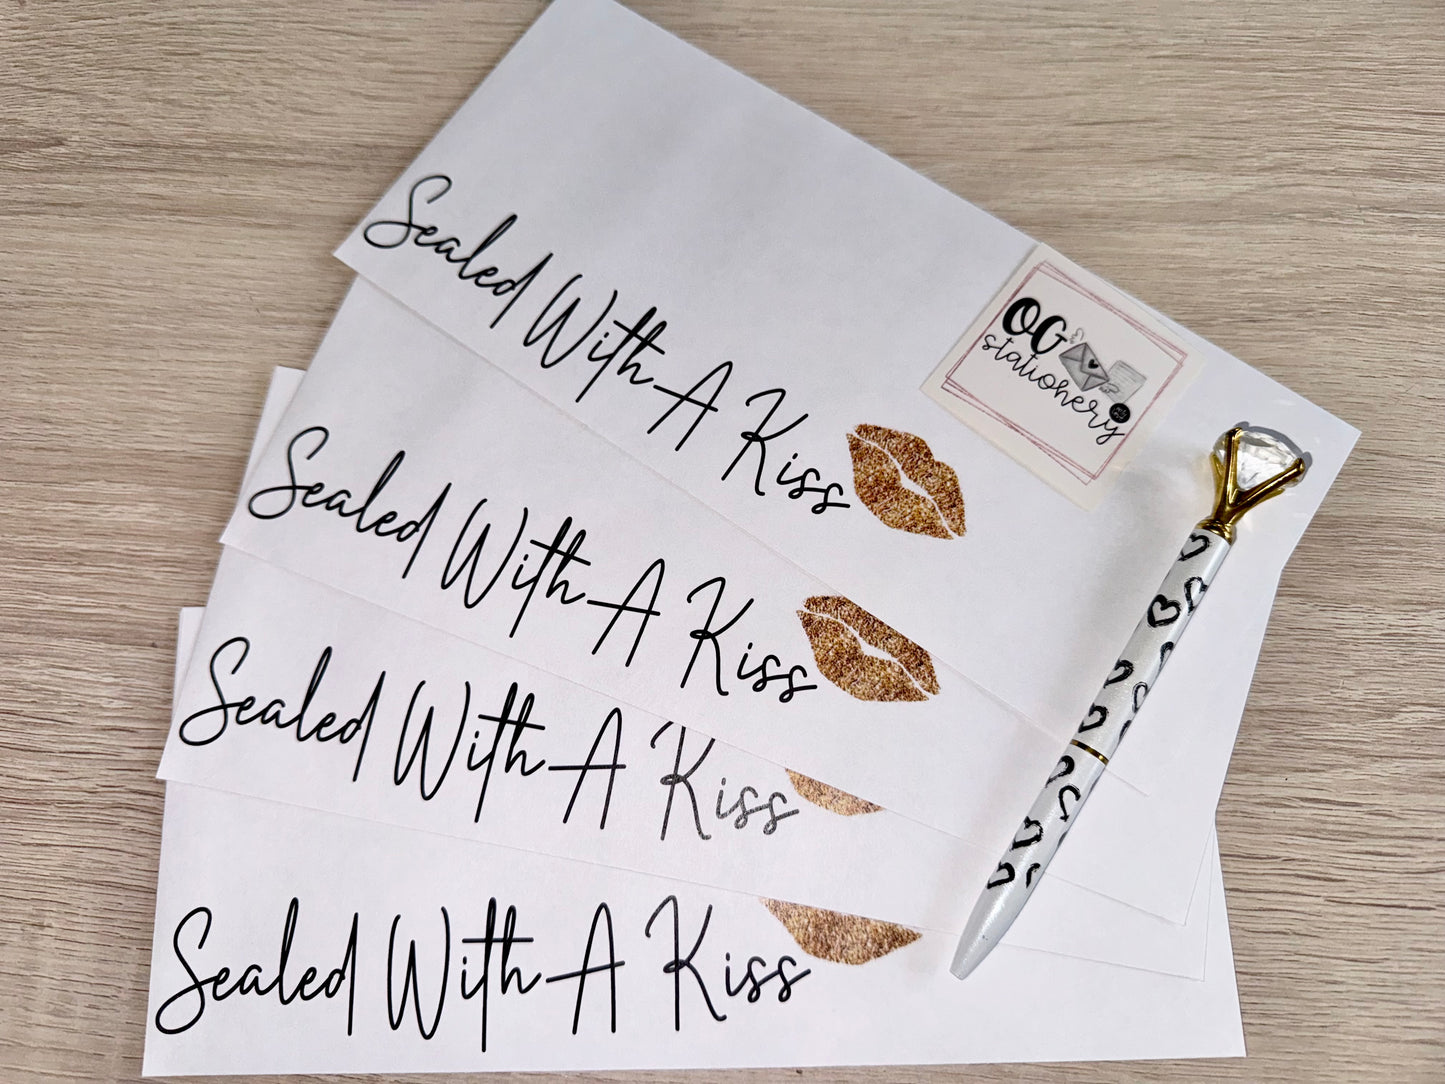 Sealed With A Kiss
OG
stationery
Sealed With A Kiss
Sealed With A Kiss
Sealed With A Kiss